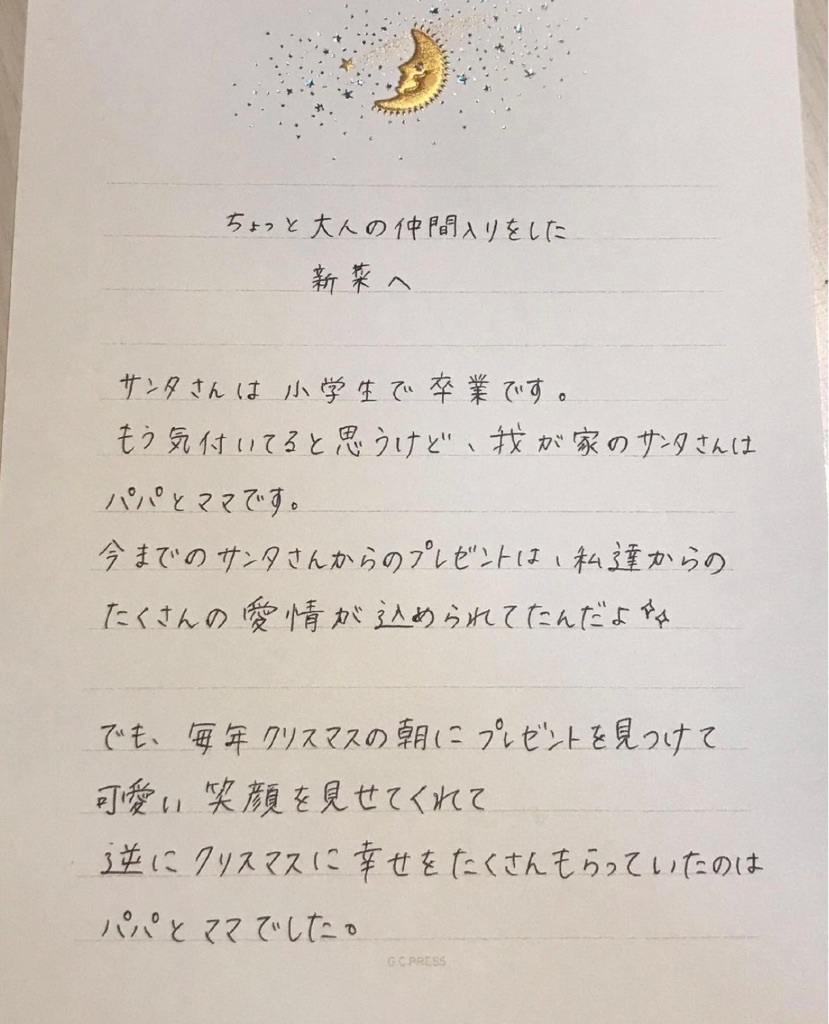 ちょっと大人の仲間入りをした
新菜へ
サンタさんは小学生で卒業です。
もう気付いてると思うけど、我が家のサンタさんは
パパとママです。
今までのサンタさんからのプレゼントは、私達からの
たくさんの愛情が込められてたんだよ✨
でも、毎年クリスマスの朝にプレゼントを見つけて
可愛い笑顔を見せてくれて
逆にクリスマスに幸せをたくさんもらっていたのは
パパとママでした。
G.C.PRESS